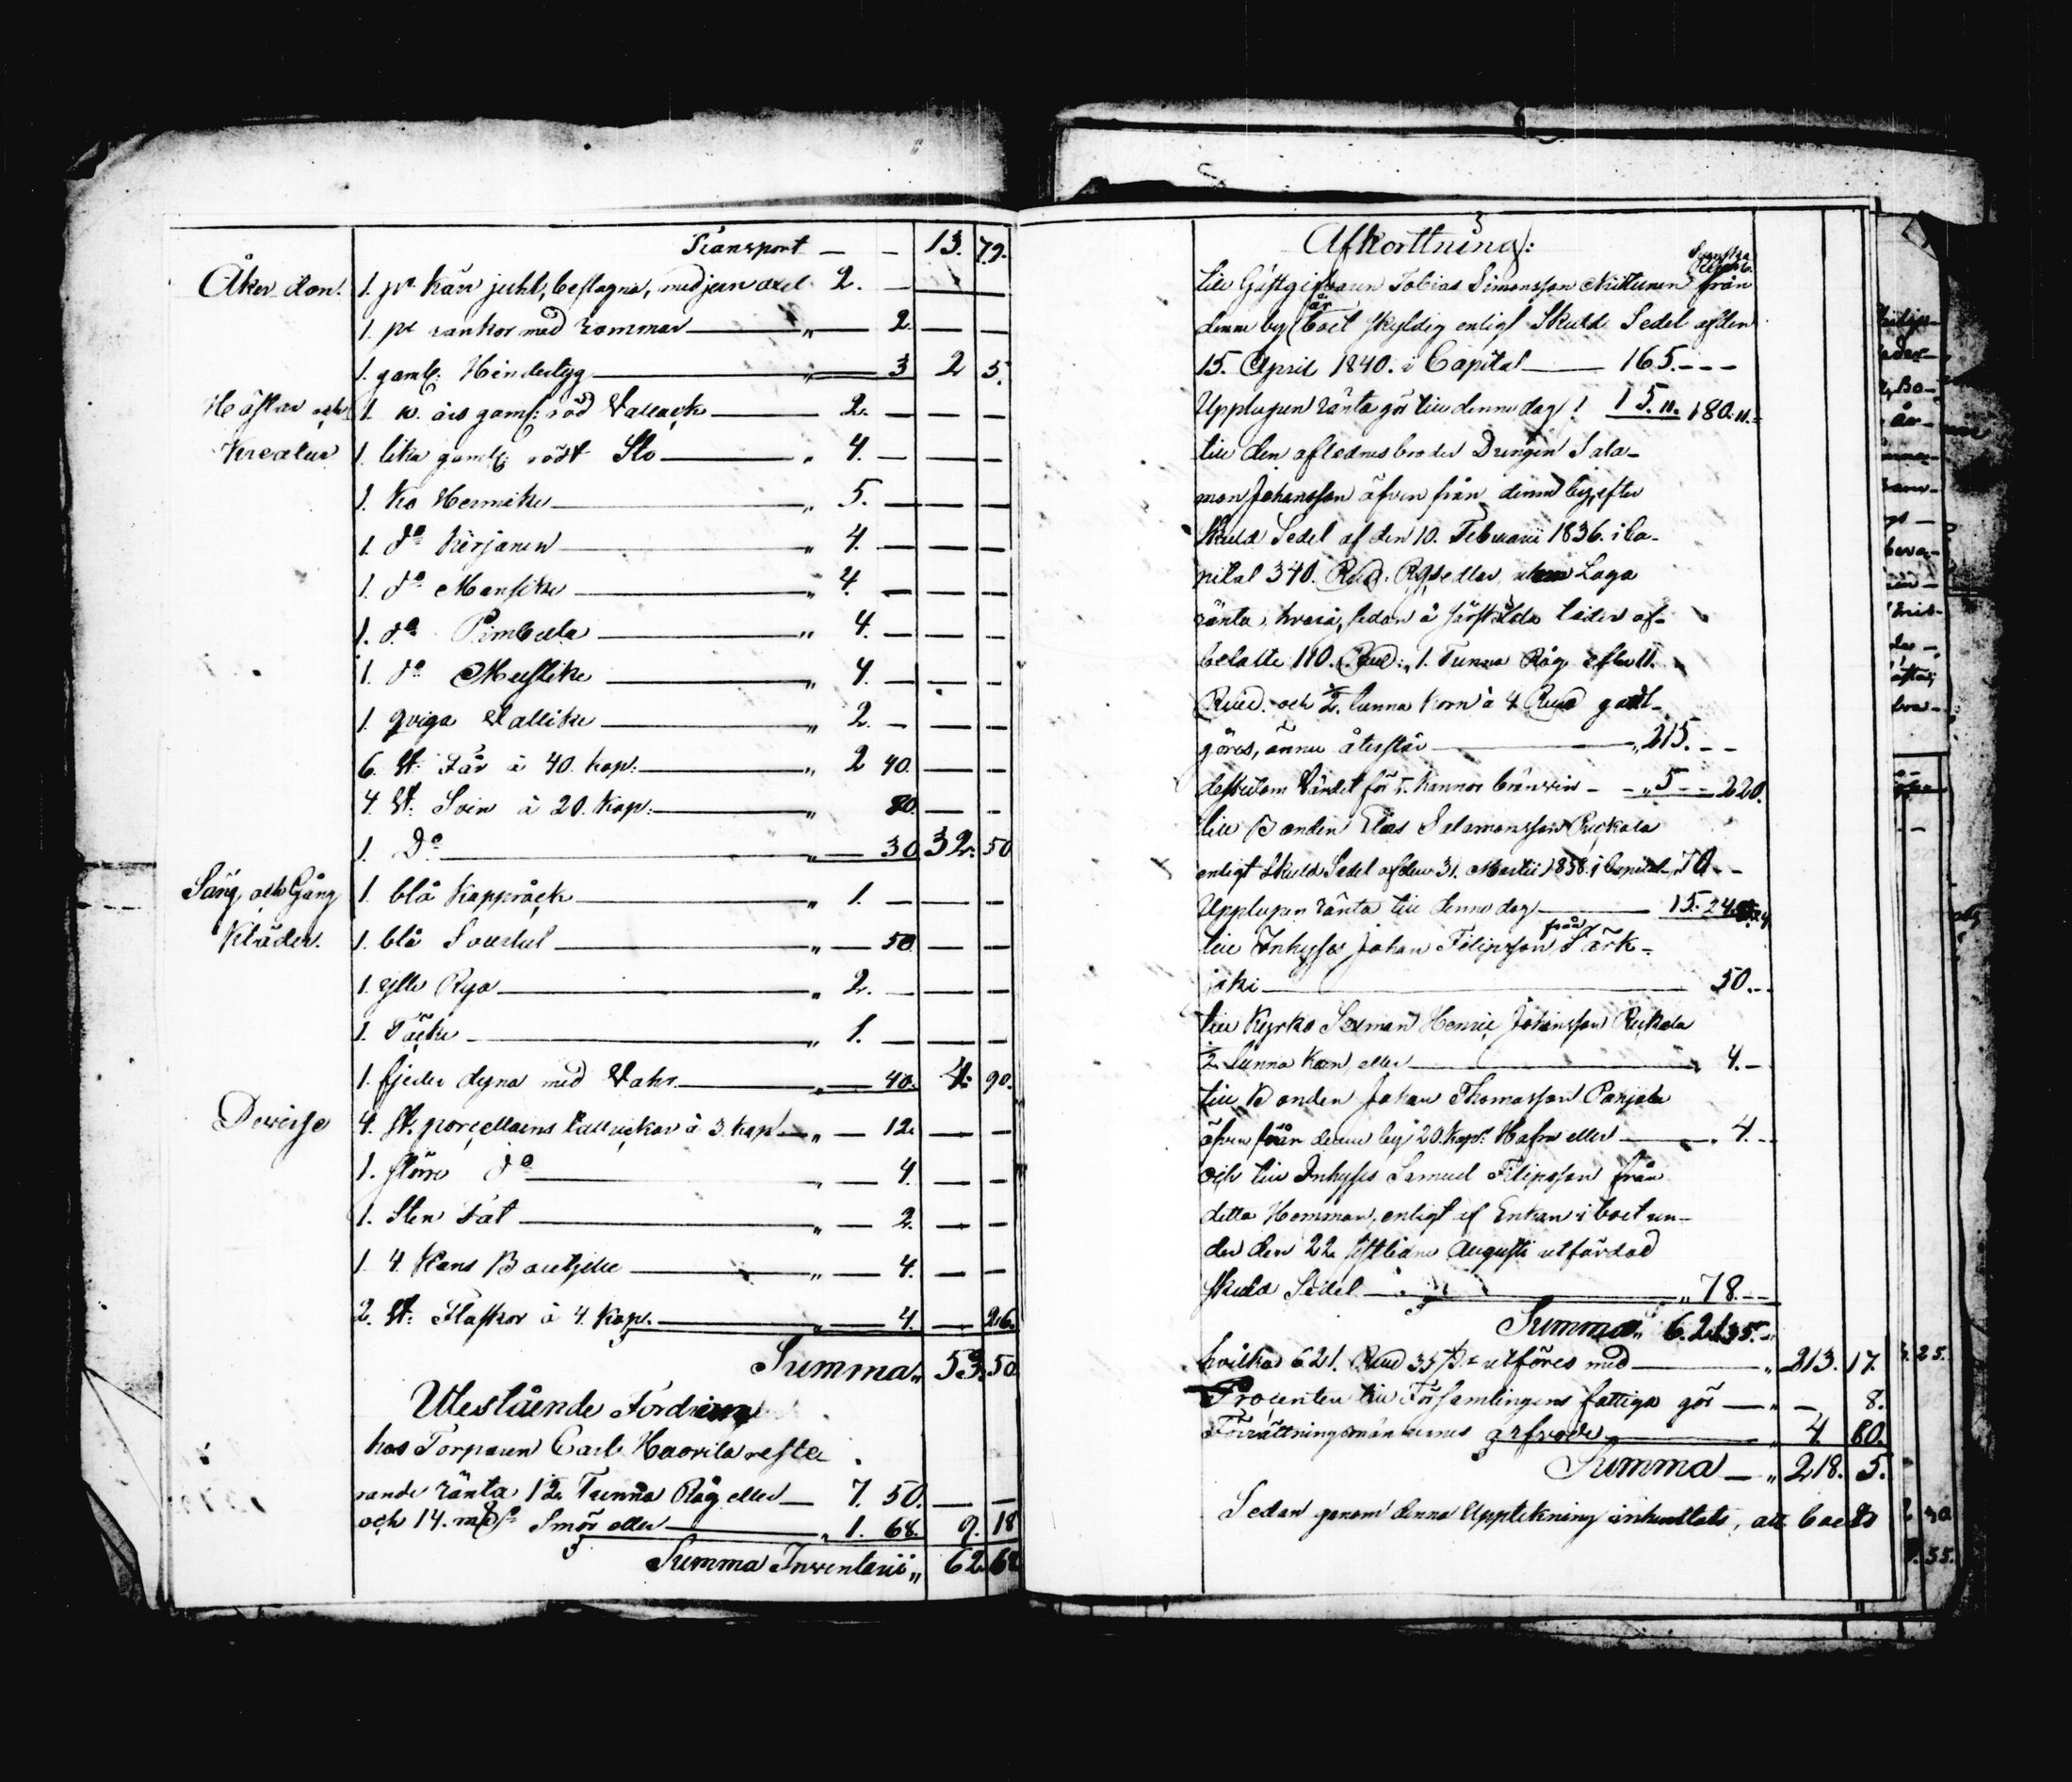 Transport — — 13. 79.
Åker don. 1. pr kärr juhl, beslagne, med jern axel 2. — — —
1. pr rankor med rommar — „ — 2. — —
1. gamb: Hindertyg — „ — 3 2 5.
Hästar och 1. 10. års gamb: röd Vallack — „ 2. — — —
Kreatur 1. lika gamb: rödt Sto — „ 4. — — —
1. Ko Hermike — „ 5. — — —
1. do Kirjanen — „ 4. — — —
1. do Mansike — „ 4. — — —
1. do Pimbula — „ 4. — — —
1. do Mustike — „ 4. — — —
1. qviga Vallike — „ 2. — — —
6. st: Får à 40. kop: — „ 2 40. — —
4. st: Svin à 20. kop: — „ 80. — —
1. Do — „ — 30 32. 50
Säng och Gång 1. blå Kappråck — „ 1. — — —
Kläder. 1. blå Sourtut — „ — 50. — —
1. ylle Rya — „ 2. — — —
1. Täcke — „ 1. — — —
1. fjeder dyna med Vahr — „ — 40. 4. 90.
Diverse 4. st. porcellaens tallrickar à 3. kop — „ — 12. — —
1. större do — „ — 4. — —
1. Sten Fat — „ — 2. — —
1. 4. Kans Boutelje — „ — 4. — —
2. st: Flaskor à 4. kop. — „ — 4. — 26.
Summa „ 53. 50
Utestående Fordran
hos Torparen Carl Haavila reste-
rande ränta 1 1/2 Tunna Råg eller — 7. 50. — —
och 14. m Smör eller — „ 1. 68. 9. 18
Summa Inventarii „ 62. 68
Afkorttning:
Svenska
till Gästgifvaren Tobias Simonsson Niittunen från
är
denne by boet skyldig enligt Skulde Sedel af den
15. April 1840. i Capital — 165. - - -
Upplupen ränta gör till denne dag 15. 11. 180. 11. -
till den aflednes broder Drengen Sala-
mon Johansson äfven från denne by, efter
Skuld Sedel af den 10. Februarii 1836. i Ca-
pital 340. Rud. Rgsedlar, utom Laga
ränta, hvarå, sedan å särskilda tider af-
betalte 110. Rud: „ 1. Tunna Råg efter 11.
Rud. och 1/2. tunna Korn à 4 Rud godt-
göres, ännu återstår — „ 215. - -
dessutom Värdet för 5. kannor bränvin - - „ 5 - - 220.
till Bonden Elias Salamonsson Ruckala
enligt Skuld Sedel af den 31. Martii 1838. i Capital 70 - -
Upplupen ränta till denne dag — 15. 24.
från
till Inhyses Johan Filipsson Särk-
iki — 50. - -
till Kyrko Sexman Henric Johansson Ruckala
1/2 Tunna Korn, eller — „ 4. -
till Bonden Johan Thomasson Panjala
äfven från denne by 20. kap: Hafra eller — „ 4. - -
och till Inhyses Samuel Filipsson från
detta Hemman, enligt af Enkan i boet un-
der den 22. sistledne Augusti utfärdad
skuld Sedel — „ 78. - -
Summa „ 621. 35. -
hvilka 621. Rud 35 ß. - utföres med — „ 213. 17.
Procenten till Församlingens fattiga gör — „ — 8.
Förrättningsmännernes arfvode — „ 4. 80.
Summa — „ 218. 5.
Sedan genom denna Uppteckning inhemtats, att boets